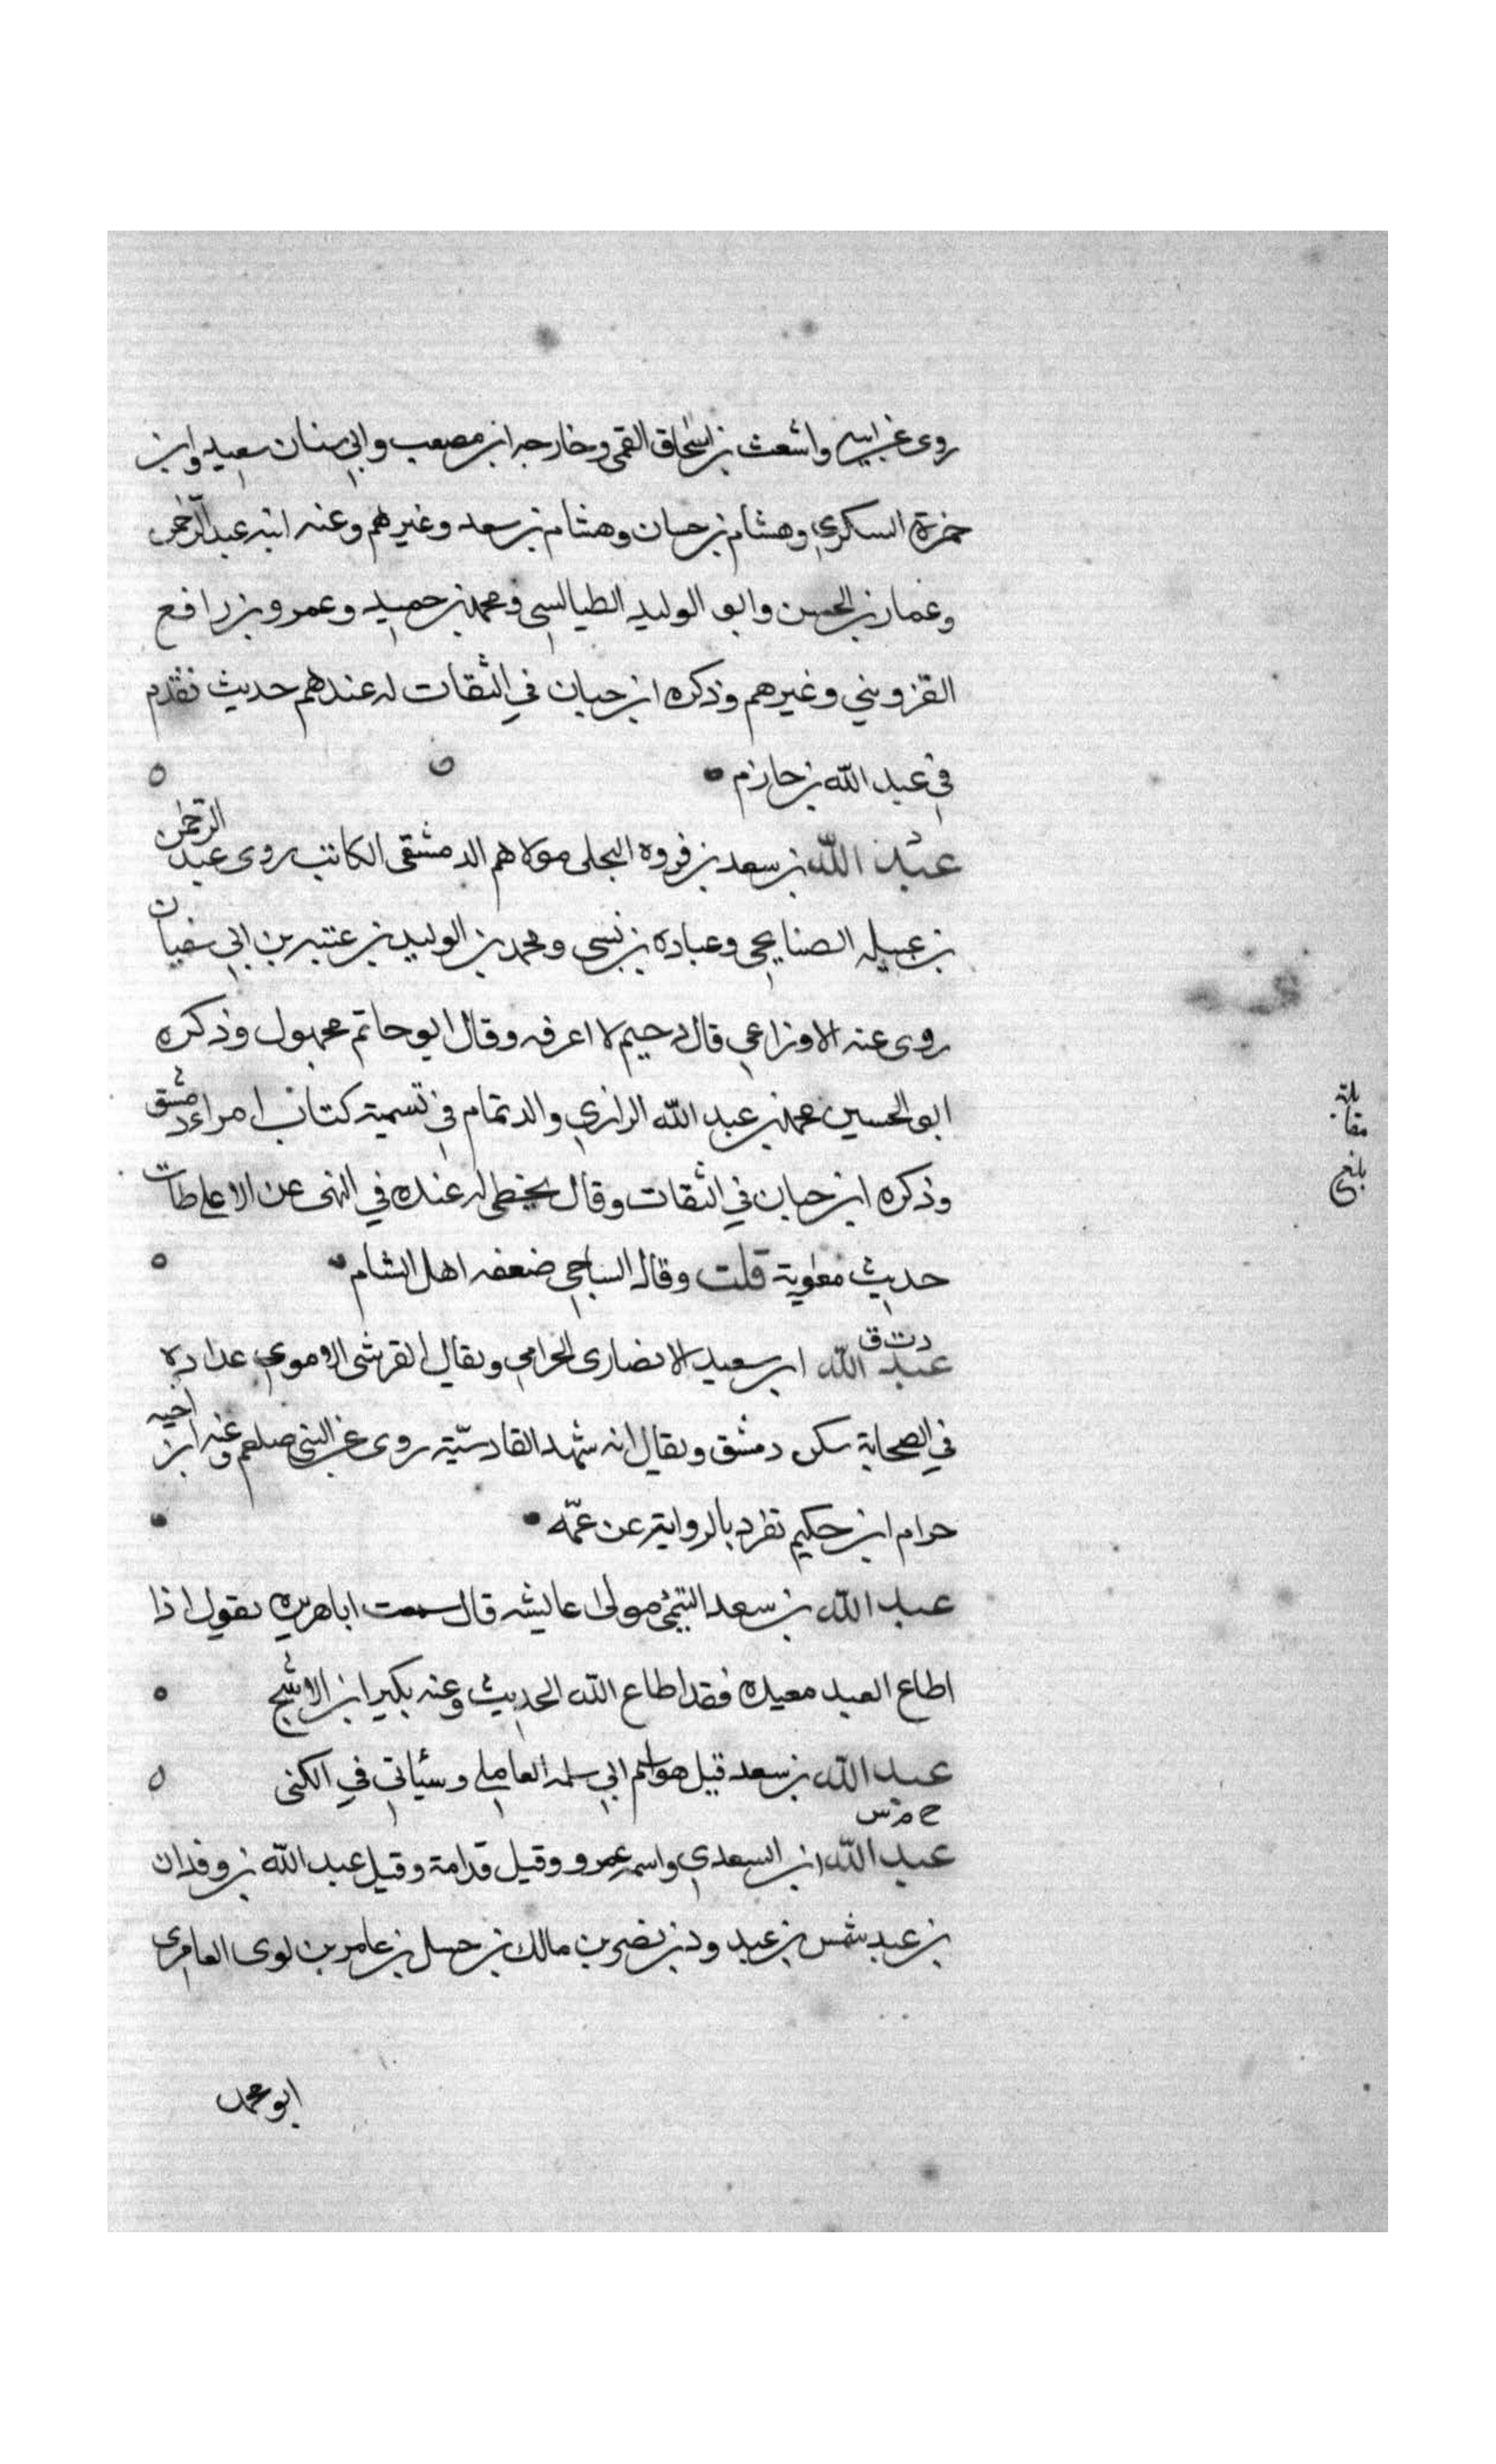 روى عن ابيه واشعث بن اسحاق القمى وخارجه ابن مصعب وابي سنان سعيد وابن
حمزة السكري وهشام بن حسان وهشام بن سعد وغيرهم وعنه ابنه عبد الرحمن
وعمار بن الحسن وابو الوليد الطيالسي ومحمد بن حميد وعمرو بن رافع
القزويني وغيرهم وذكره ابن حبان في الثقات له عندهم حديث تقدم
في عبد الله بن حازم
عبد الله بن سعد بن فروه البجلى مولاهم الدمشقى الكاتب روى عبد الرحمن
بن عسيله الصنابحي وعباده بن نسي ومحمد بن الوليد بن عتبه بن ابي سفيان
روى عنه الاوزاعي قال دحيم لا اعرفه وقال ابو حاتم مجهول وذكره
ابو الحسين محمد بن عبد الله الرازي والد تمام في تسمية كتاب امراء دمشق
وذكره ابن حبان في الثقات وقال يخطى له عنده في النهى عن الاغلطات
حديث معوية قلت وقال الساجي ضعفه اهل الشام
د ت ق
عبد الله ابن سعيد الانصارى الحرامي ويقال القرشى الاموي عداده
في الصحابة سكن دمشق ويقال انه شهد القادسيّة روى عن النبي صلعم وعنه ابن اخيه
حرام ابن حكيم تفرد بالرواية عن عمّه
عبد الله بن سعد التيمي مولى عايشه قال سمعت ابا هريره يقول اذا
اطاع العبد سيده فقد اطاع الله الحديث وعنه بكير ابن الاشج
عبد الله بن سعد قيل هو اسم ابي سلمه العاملي وسيأتي في الكنى
خ م س
عبد الله ابن السعدي واسمه عمرو وقيل قدامة وقيل عبد الله بن وقدان
بن عبد شمس بن عبد ود بن نصر بن مالك بن حسل بن عامر بن لوى العامرى
ابو محمد
بلغ
مقابلة